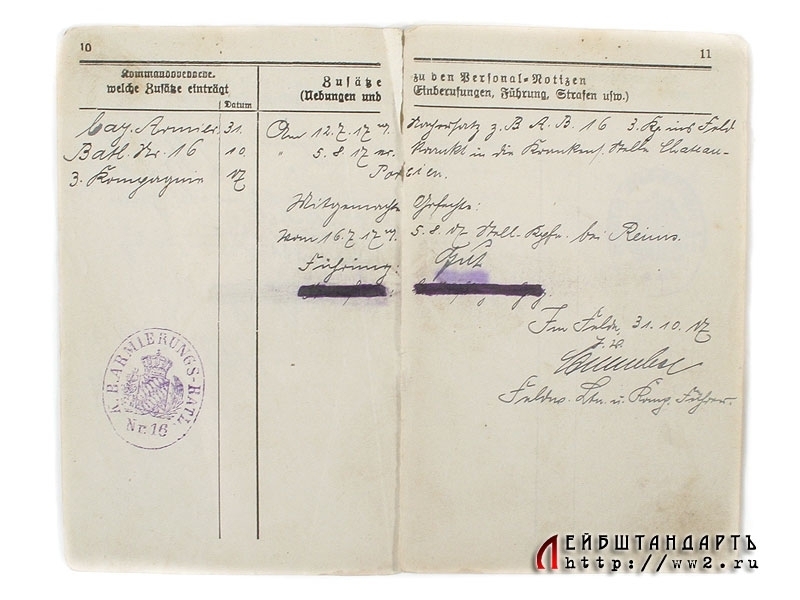 10
11
Kommandobehörde.
welche Zusätze einträgt
Datum
Zusätze zu den Personal-Notizen
(Uebungen und Einberufungen, Führung, Strafen usw.)
Bay. Armier. 31. Am 12.7.17 Nachersatz z. B. A. B. 16 3. Kp ins Feld
Batl. Nr. 16 10. 5.8.17 krankt in die Kranken Stelle
3. Kompagnie 17
Mitgemachte Gefechte:
Vom 16.7.17 5.8.17 Stell. Kpfe. bei Reims.
Führung: Gut
Im Felde, 31.10.17
Feldw. Ltn. u. Komp. Führer.
K. B. ARMIERUNGS-BATL.
Nr. 16
ЛЕЙБШТАНДАРТЪ
http://ww2.ru